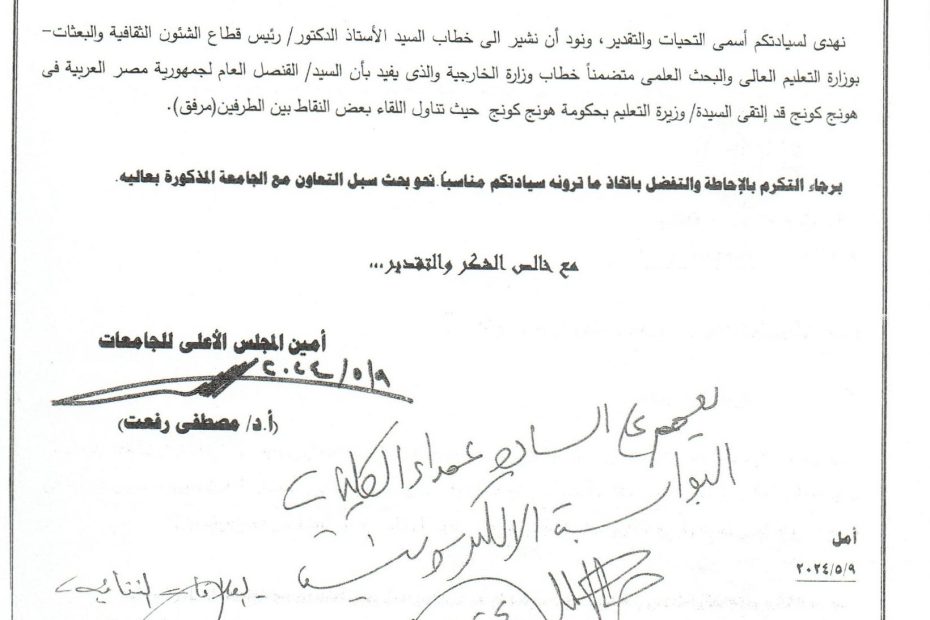 نهدى لسيادتكم أسمى التحيات والتقدير ، ونود أن نشير الى خطاب السيد الأستاذ الدكتور/ رئيس قطاع الشئون الثقافية والبعثات-
بوزارة التعليم العالى والبحث العلمى متضمناً خطاب وزارة الخارجية والذى يفيد بأن السيد/ القنصل العام لجمهورية مصر العربية فى
هونج كونج قد إلتقى السيدة/ وزيرة التعليم بحكومة هونج كونج حيث تناول اللقاء بعض النقاط بين الطرفين(مرفق).
برجاء التكرم بالإحاطة والتفضل باتخاذ ما ترونه سيادتكم مناسباً نحو بحث سبل التعاون مع الجامعة المذكورة بعاليه.
مع خالص الشكر والتقدير،،،
أمين المجلس الأعلى للجامعات
٢٠٢٤/٥/٩
(أ.د/ مصطفى رفعت)
يعمم على السادة عمداء الكليات
البوابة الالكترونية
أمل
٢٠٢٤/٥/٩